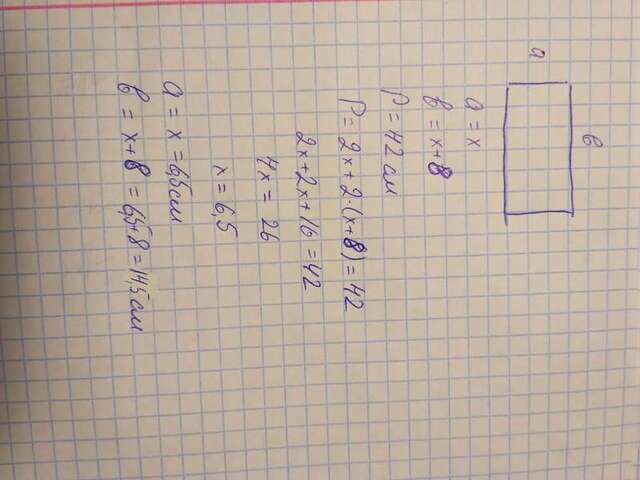 a
в
a = x
в = x+8
P = 42 см
P = 2x + 2·(x+8) = 42
2x+2x+16 = 42
4x = 26
x = 6,5
a = x = 6,5см
в = x+8 = 6,5+8 = 14,5 см